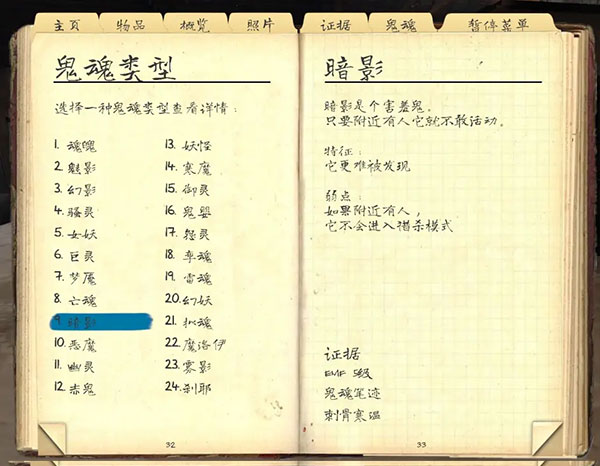 主页 物品 概览 照片 证据 鬼魂 暂停菜单
鬼魂类型
选择一种鬼魂类型查看详情：
1. 魂魄
2. 魅影
3. 幻影
4. 骚灵
5. 女妖
6. 巨灵
7. 梦魇
8. 亡魂
9. 暗影
10. 恶魔
11. 幽灵
12. 赤鬼
13. 妖怪
14. 寒魔
15. 御灵
16. 鬼婴
17. 怨灵
18. 孪魂
19. 雷魂
20. 幻妖
21. 拟魂
22. 魔洛伊
23. 雾影
24. 刹耶
32
暗影
暗影是个害羞鬼。
只要附近有人它就不敢活动。
特征：
它更难被发现
弱点：
如果附近有人，
它不会进入猎杀模式
证据
EMF 5级
鬼魂笔迹
刺骨寒温
33